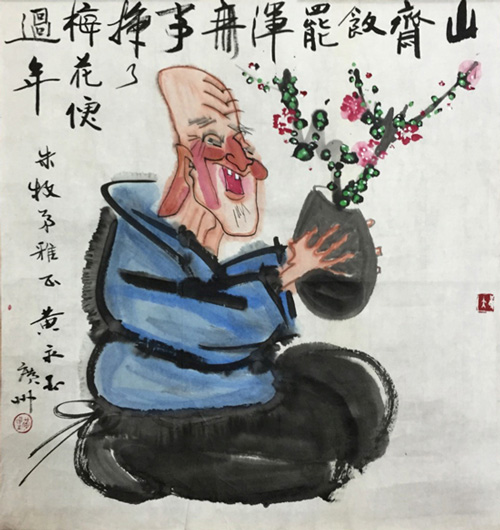 山齋飯罷渾無事挿了
梅花便
過年
朱牧弟雅正 黃永玉
廣州